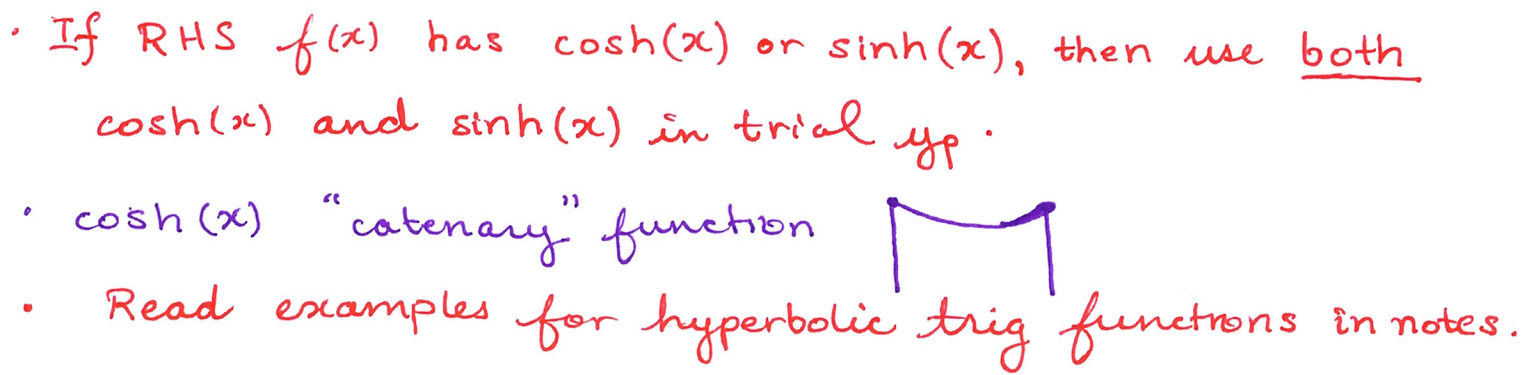 · If RHS f(x) has cosh(x) or sinh(x), then use both
cosh(x) and sinh(x) in trial yp.
· cosh(x) "catenary" function
· Read examples for hyperbolic trig functions in notes.